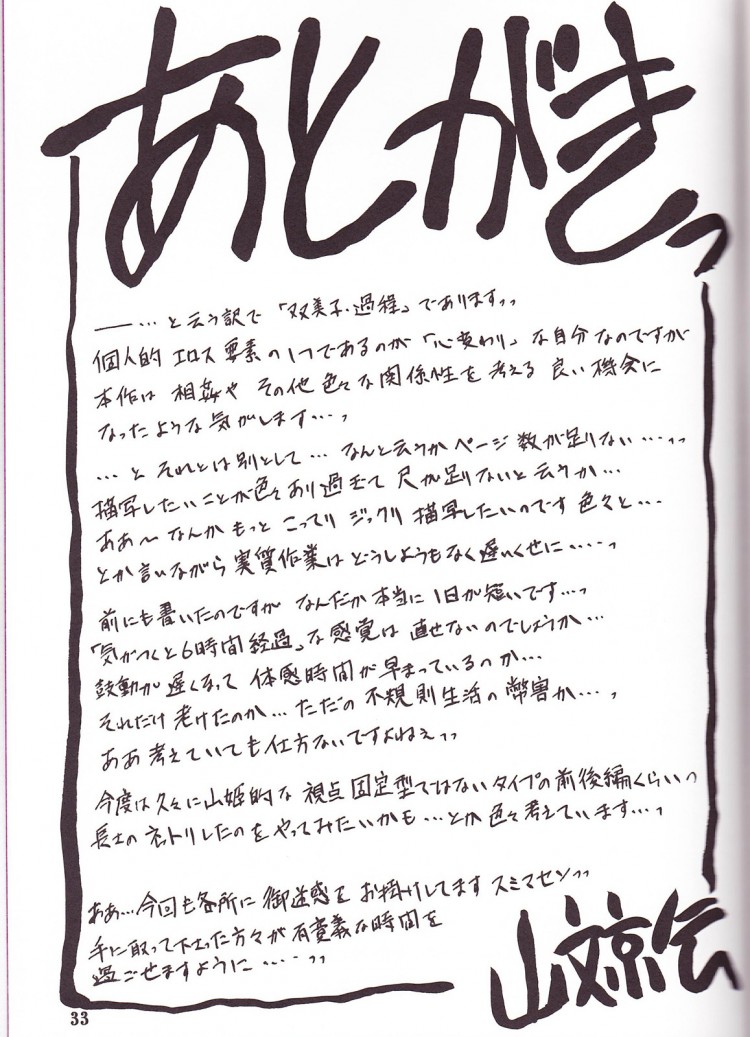 あとがきっ
――…と云う訳で「双美子・過程」でありますっっ
個人的エロス要素の1つであるのが「心変わり」な自分なのですが
本作は相姦やその他色々な関係性を考える良い機会に
なったような気がします…っ
…とそれとは別として…なんと云うかページ数が足りない…っっ
描写したいことが色々あり過ぎて尺が足りないと云うか…
ああ〜なんかもっとこってりジックリ描写したいのです色々と…
とか言いながら実質作業はどうしようもなく遅いくせに……っ
前にも書いたのですがなんだか本当に1日が短いです…っ
「気がつくと6時間経過」な感覚は直せないのでしょうか…
鼓動が遅くなって体感時間が早まっているのか…
それだけ老けたのか…ただの不規則生活の弊害か…っ
ああ考えていても仕方ないですよねぇっっ
今度は久々に山姫的な視点固定型ではないタイプの前後編くらいっ
長さのネットリしたのをやってみたいかも…とか色々考えています…っ
ああ…今回も各所に御迷惑をお掛けしてますスミマセンっっ
手に取って下さった方々が有意義な時間を
過ごせますように……っっ
山文京伝
33